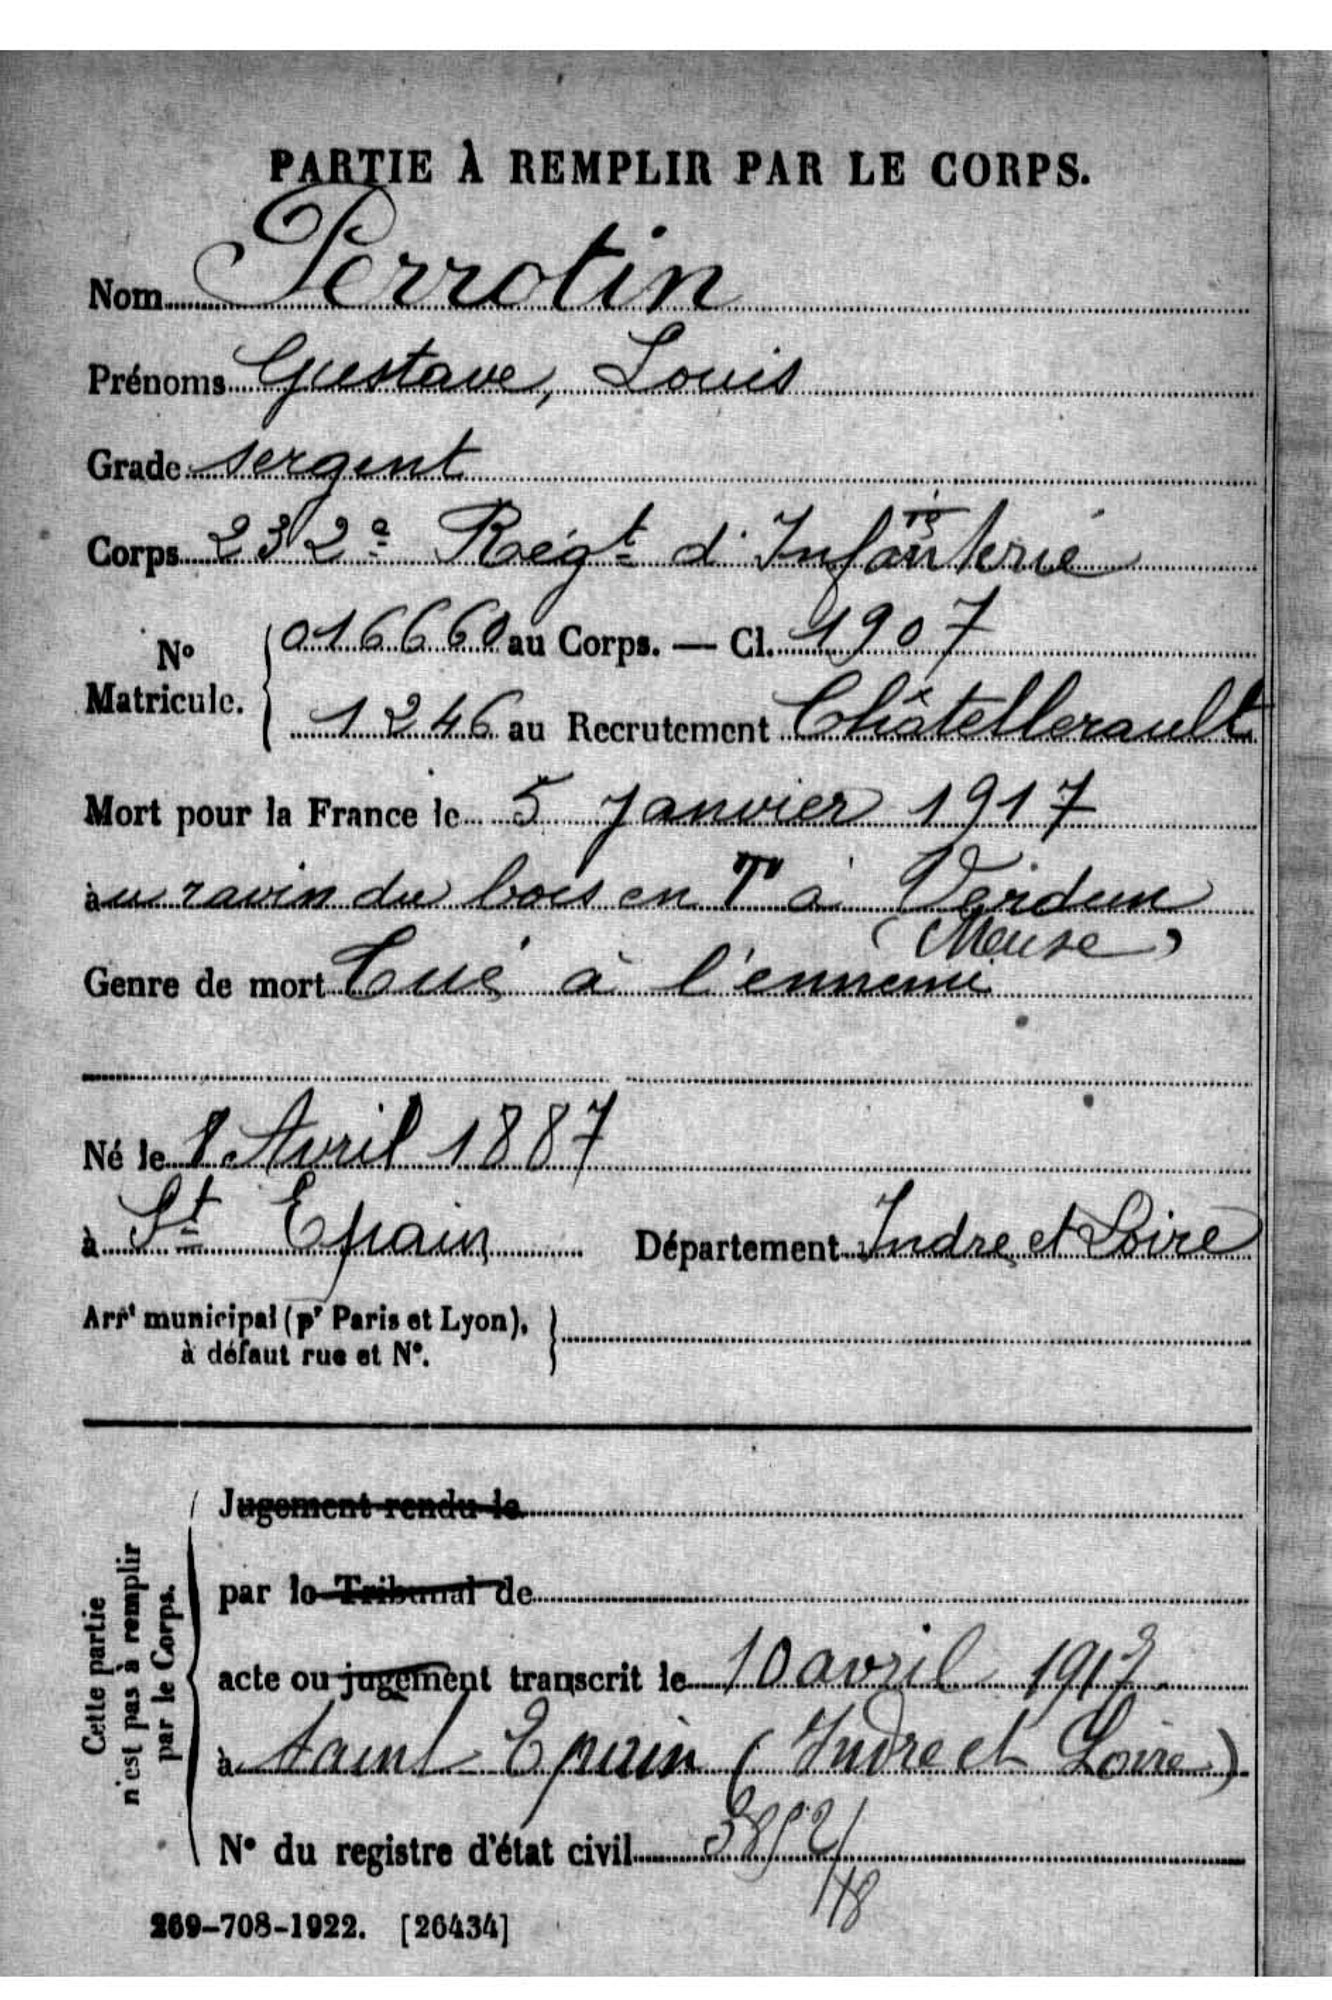 PARTIE À REMPLIR PAR LE CORPS.
Nom Perrotin
Prénoms Gustave, Louis
Grade sergent
Corps 232e Régt d'Infanterie
No Matricule. 016660 au Corps. — Cl. 1907
1246 au Recrutement Châtellerault
Mort pour la France le 5 Janvier 1917
au ravin du bois en T à Verdun
(Meuse)
Genre de mort Tué à l'ennemi
Né le 8 Avril 1887
à St Epain Département Indre et Loire
Arrt municipal (pr Paris et Lyon),
à défaut rue et No.
Cette partie
n'est pas à remplir
par le Corps.
Jugement rendu le
par le Tribunal de
acte ou jugement transcrit le 10 avril 1917
à Saint Epain (Indre et Loire)
No du registre d'état civil
269-708-1922. [26434]